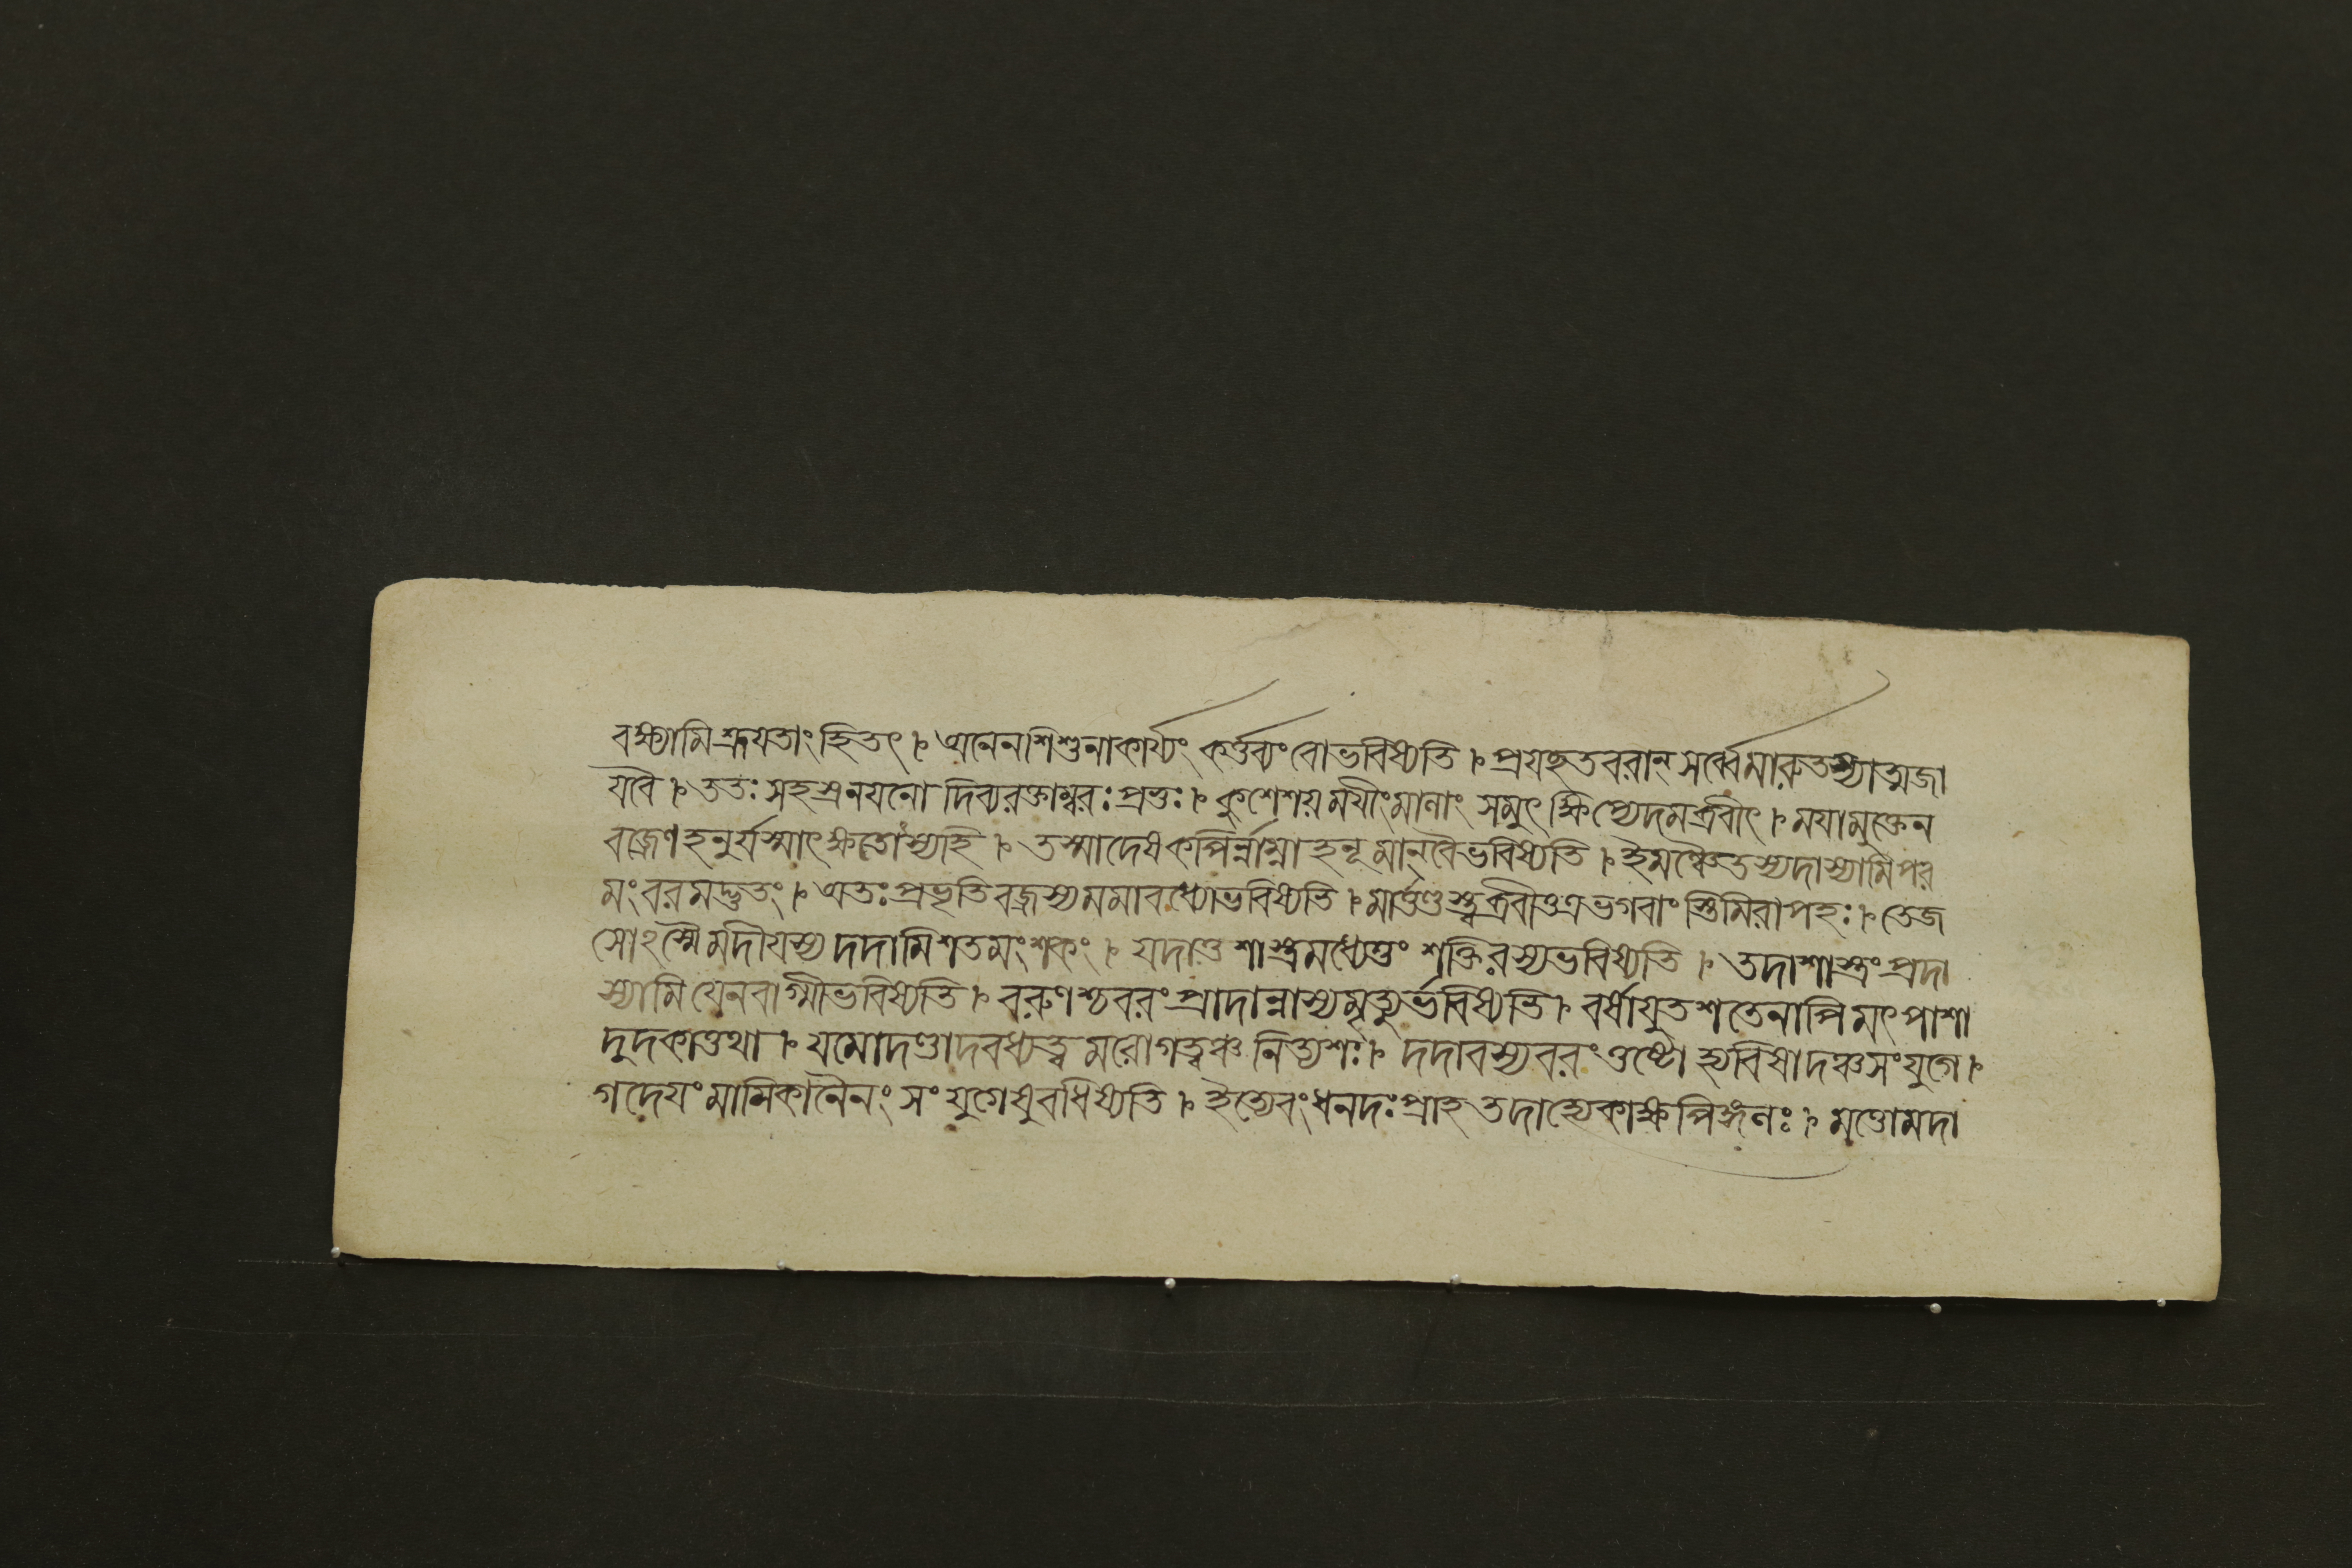 বক্ষ্যামিশ্রূযতাংহিতং । অনেনশিশুনাকার্য্যং কর্ত্তব্যংবোভবিষ্যতি । প্রযচ্ছতবরান্ সর্ব্বেমারুতস্যাত্মজা
যবৈ । ততঃ সহস্রনযনো দিব্যরক্তাম্বরঃ প্রভুঃ । কুশেশয়মযীংমালাং সমুৎক্ষিপ্যেদমব্রবীৎ । মযামুক্তেন
বজ্রেণহনুর্যস্মাৎক্ষতোস্যহি । তস্মাদেষকপির্ন্নাম্না হনূমান্বৈভবিষ্যতি । ইমঞ্চৈতস্যদাস্যামিপর
মংবরমদ্ভুতং । অতঃপ্রভৃতিবজ্রস্যমমাবধ্যোভবিষ্যতি । মার্ত্তণ্ডস্ত্বব্রবীত্তত্রভগবাংস্তিমিরাপহঃ । তেজ
সোঽস্মৈমদীযস্য দদামিশতমংশকং । যদাতু শাস্ত্রমধ্যেতুং শক্তিরস্যভবিষ্যতি । তদাশাস্ত্রংপ্রদা
স্যামি যেনবাগ্মীভবিষ্যতি । বরুণশ্চবরংপ্রাদান্নাস্যমৃত্যুর্ভবিষ্যতি । বর্ষাযুতশতেনাপি মৎপাশা
দুদকাত্তথা । যমোদণ্ডাদবধ্যত্বমরোগত্বঞ্চ নিত্যশঃ । দদাবস্যবরংতুষ্টো হ্যবিষাদঞ্চসংযুগে ।
গদেযংমামিকানৈনং সংযুগেষুবধিষ্যতি । ইত্যেবংধনদঃপ্রাহ তদাহ্যেকাক্ষপিঙ্গলঃ । মত্তোমদা